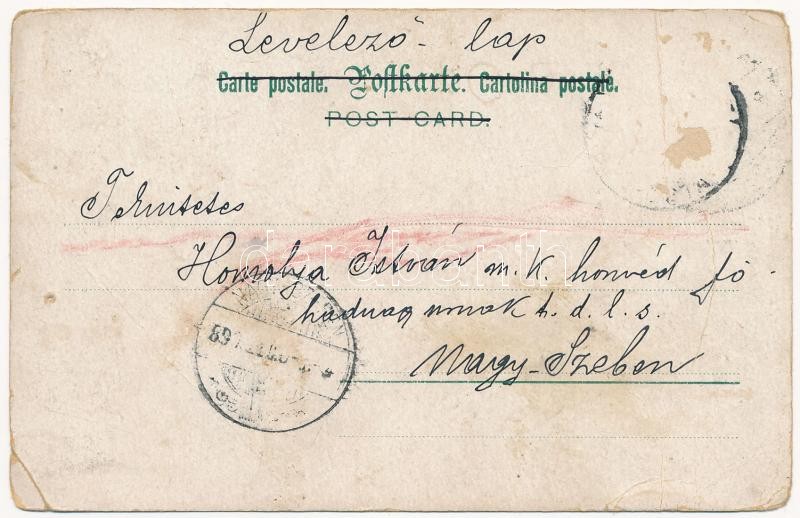 Levelező-lap
Carte postale. Postkarte. Cartolina postale.
POST CARD.
Homolya István m. k. honvéd fő-
hadnagy urnak t. d. l. s.
Nagy-Szeben